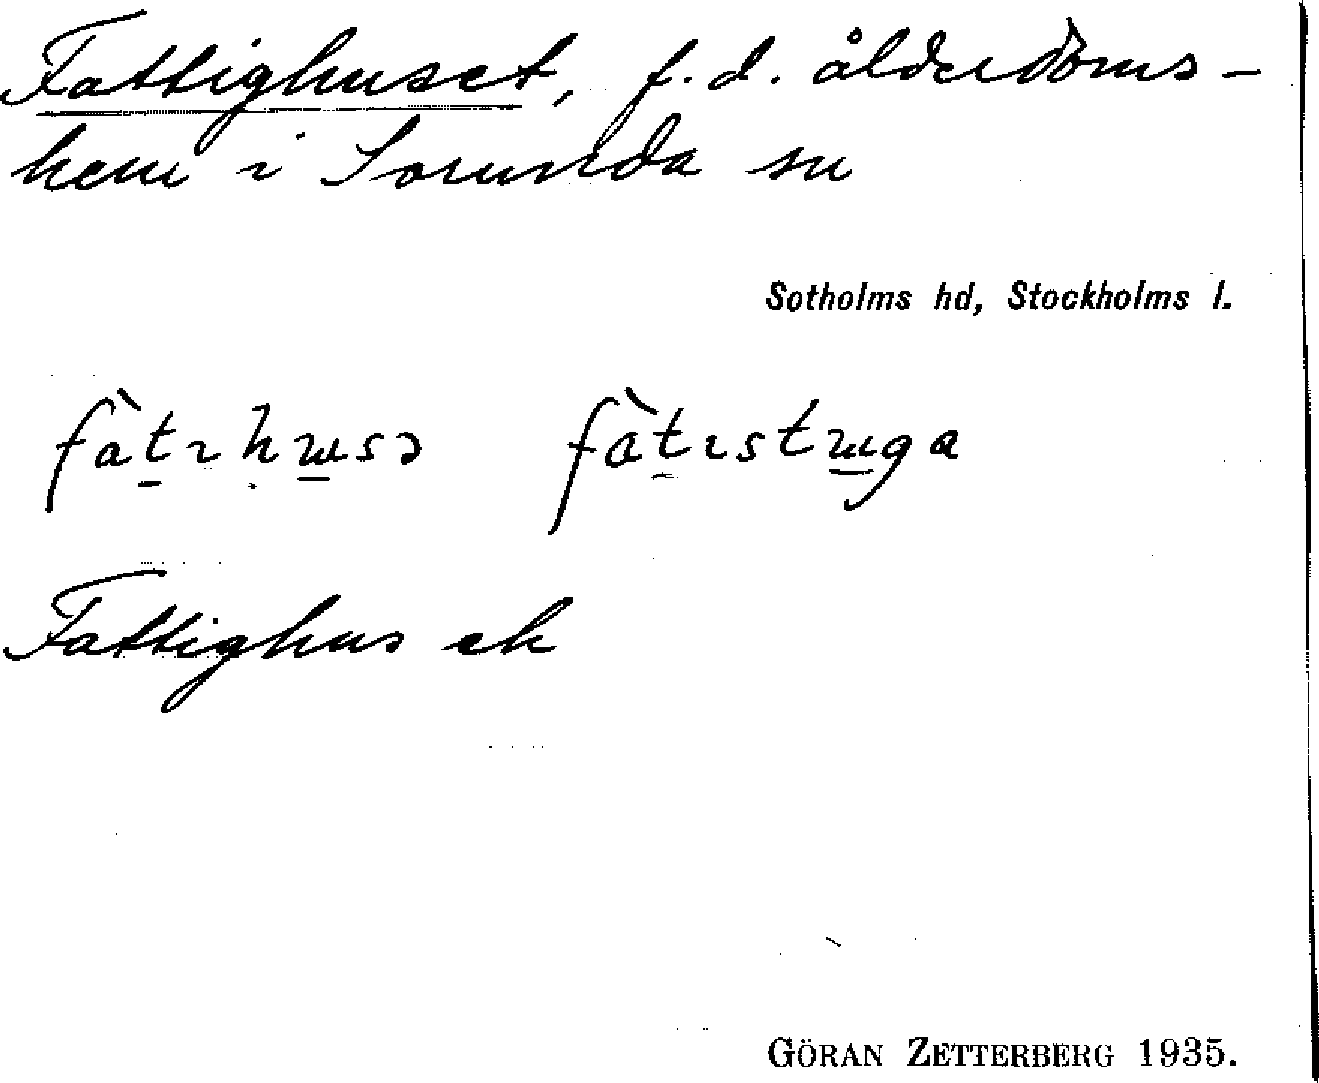 Fattighuset, f.d. ålderdoms-
hem i Sorunda sn
Sotholms hd, Stockholms l.
fàt̠ıhɯ̠sɔ fàt̠ıstɯ̠ga
Fattighus ek
GÖRAN ZETTERBERG 1935.